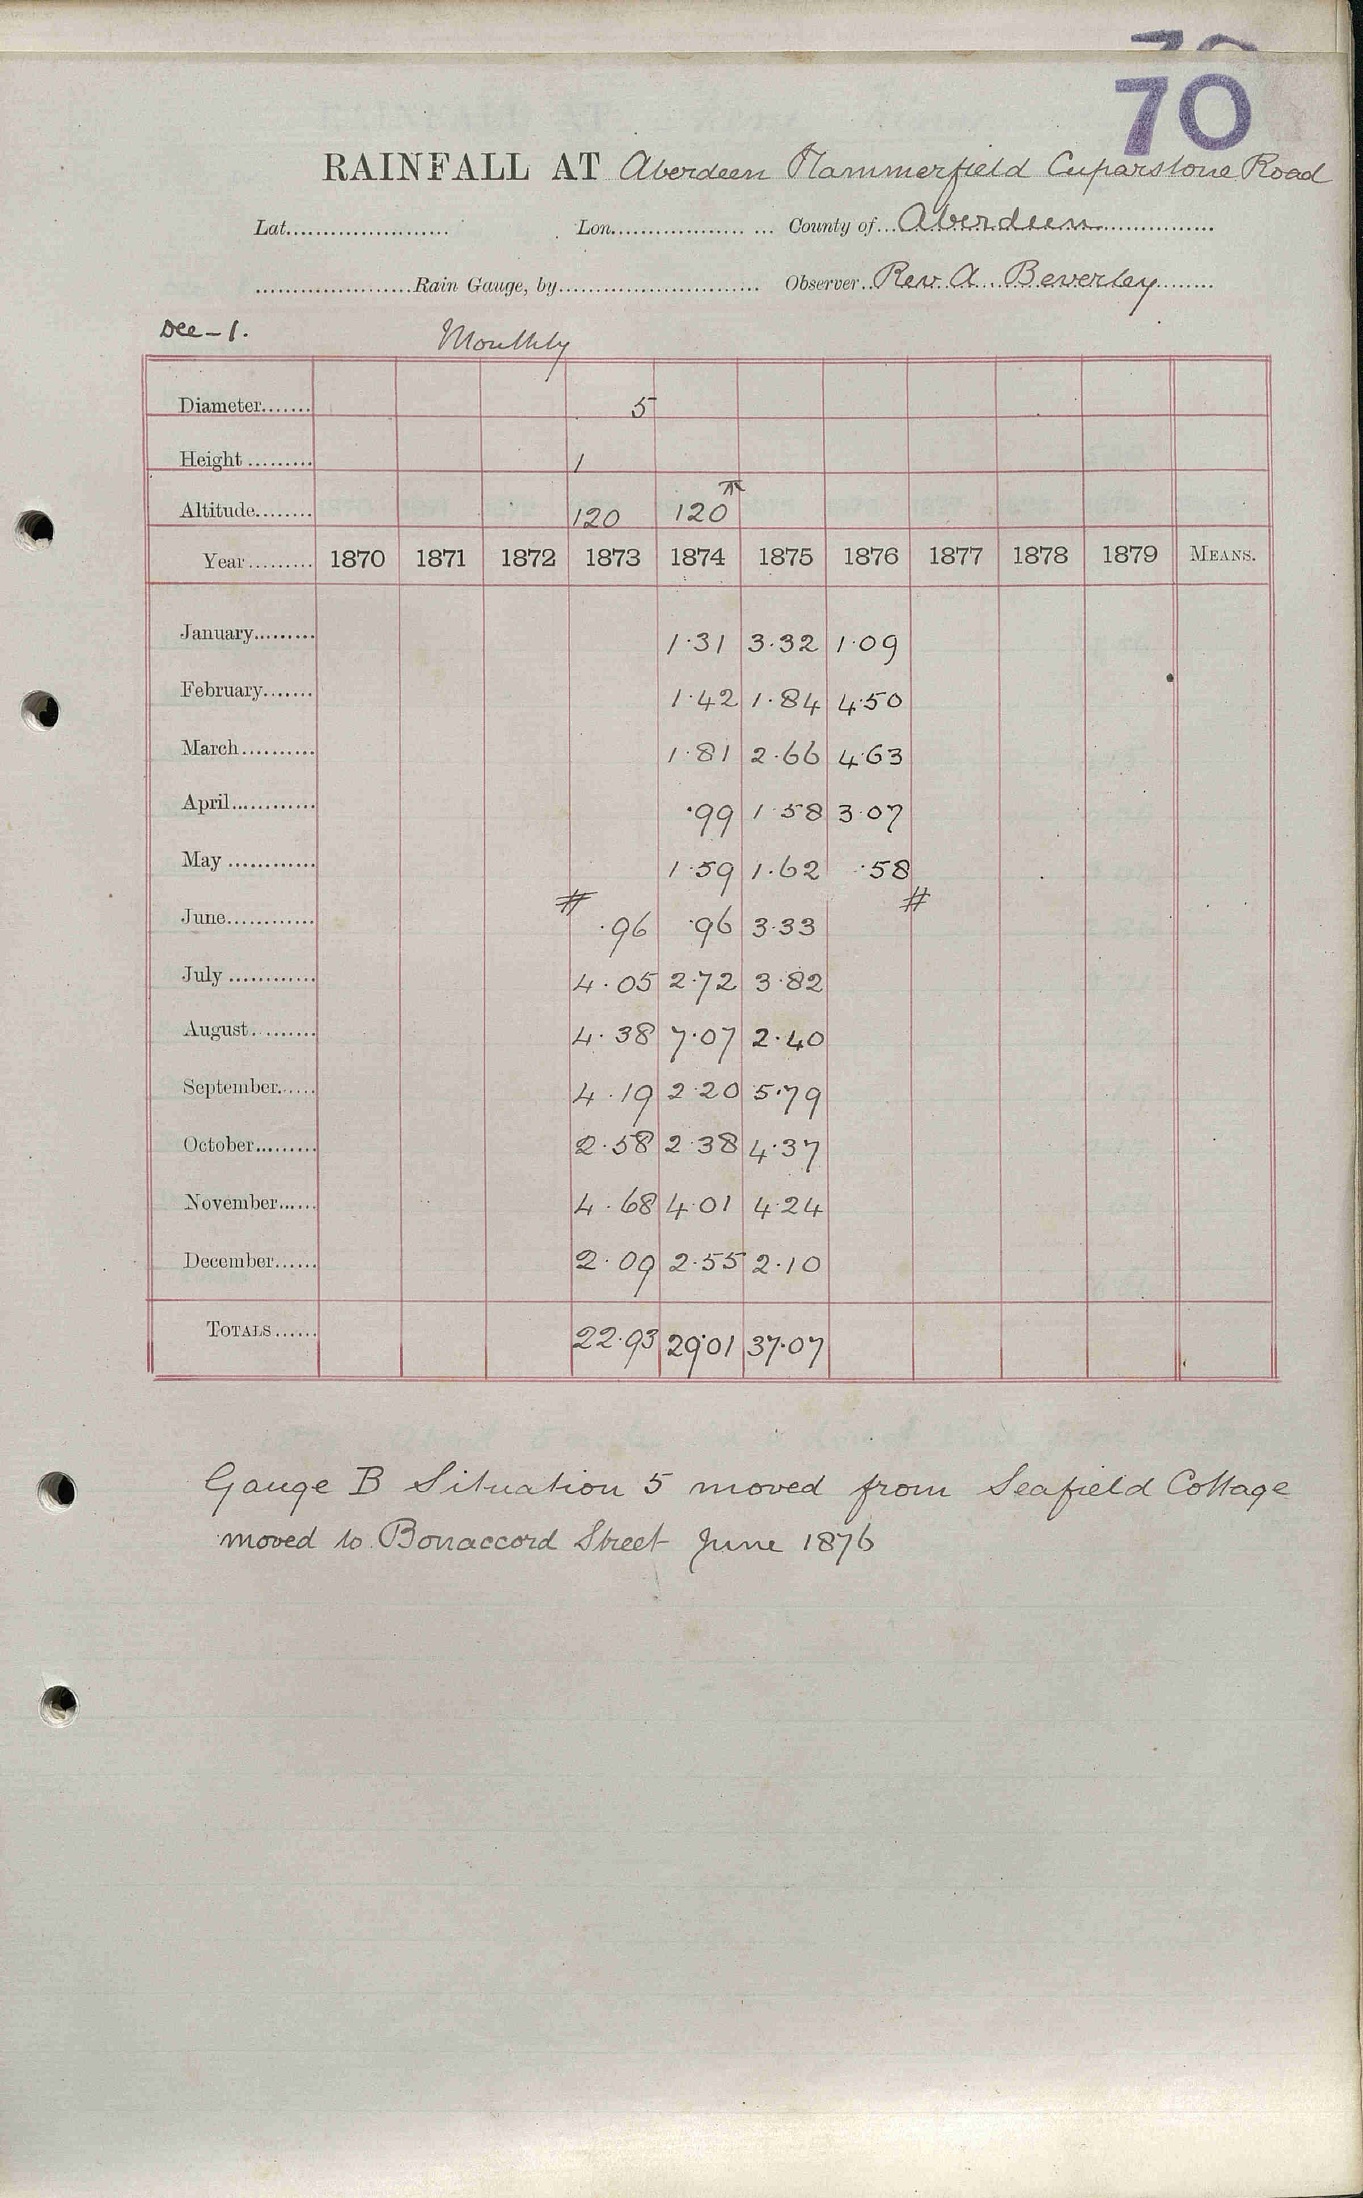 70
70
RAINFALL AT Aberdeen Hammerfield Cuparstone Road
Lat..................... Lon..................... County of...Aberdeen...............
.....................Rain Gauge, by........................... Observer..Rev. A. Beverley.......
Dee - 1. Monthly
Diameter....... 5
Height ......... 1
Altitude........ 120 120 π
Year......... 1870 1871 1872 1873 1874 1875 1876 1877 1878 1879 MEANS.
January......... 1.31 3.32 1.09
February....... 1.42 1.84 4.50
March.......... 1.81 2.66 4.63
April............ .99 1.58 3.07
May ............ 1.59 1.62 .58
# #
June............ .96 .96 3.33
July ............ 4.05 2.72 3.82
August......... 4.38 7.07 2.40
September...... 4.19 2.20 5.79
October......... 2.58 2.38 4.37
November...... 4.68 4.01 4.24
December...... 2.09 2.55 2.10
TOTALS...... 22.93 29.01 37.07
Gauge B Situation 5 moved from Seafield Cottage
moved to Bonaccord Street June 1876